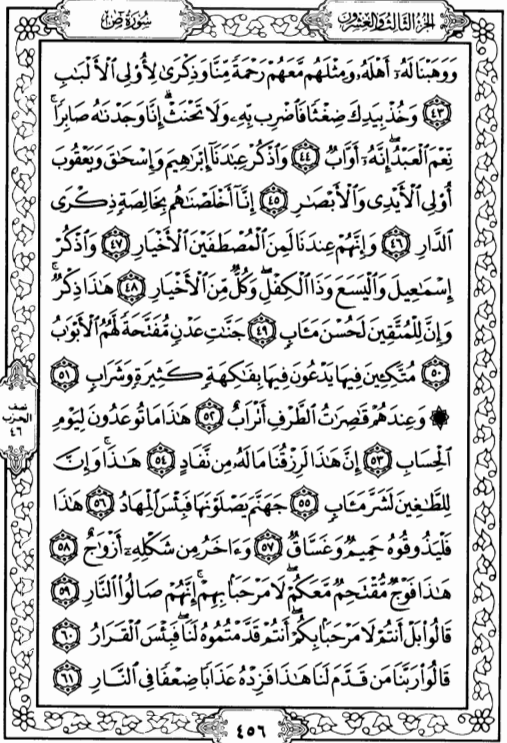 سُورَةُ صٓ
الجُزْءُ الثَّالِثُ وَالعِشْرُونَ
وَوَهَبْنَا لَهُۥٓ أَهْلَهُۥ وَمِثْلَهُم مَّعَهُمْ رَحْمَةً مِّنَّا وَذِكْرَىٰ لِأُو۟لِى ٱلْأَلْبَٰبِ
﴿٤٣﴾ وَخُذْ بِيَدِكَ ضِغْثًا فَٱضْرِب بِّهِۦ وَلَا تَحْنَثْ ۗ إِنَّا وَجَدْنَٰهُ صَابِرًا ۚ
نِّعْمَ ٱلْعَبْدُ ۖ إِنَّهُۥٓ أَوَّابٌ ﴿٤٤﴾ وَٱذْكُرْ عِبَٰدَنَآ إِبْرَٰهِيمَ وَإِسْحَٰقَ وَيَعْقُوبَ
أُو۟لِى ٱلْأَيْدِى وَٱلْأَبْصَٰرِ ﴿٤٥﴾ إِنَّآ أَخْلَصْنَٰهُم بِخَالِصَةٍ ذِكْرَى
ٱلدَّارِ ﴿٤٦﴾ وَإِنَّهُمْ عِندَنَا لَمِنَ ٱلْمُصْطَفَيْنَ ٱلْأَخْيَارِ ﴿٤٧﴾ وَٱذْكُرْ
إِسْمَٰعِيلَ وَٱلْيَسَعَ وَذَا ٱلْكِفْلِ ۖ وَكُلٌّ مِّنَ ٱلْأَخْيَارِ ﴿٤٨﴾ هَٰذَا ذِكْرٌ ۚ
وَإِنَّ لِلْمُتَّقِينَ لَحُسْنَ مَـَٔابٍ ﴿٤٩﴾ جَنَّٰتِ عَدْنٍ مُّفَتَّحَةً لَّهُمُ ٱلْأَبْوَٰبُ
﴿٥٠﴾ مُتَّكِـِٔينَ فِيهَا يَدْعُونَ فِيهَا بِفَٰكِهَةٍ كَثِيرَةٍ وَشَرَابٍ ﴿٥١﴾
۞ وَعِندَهُمْ قَٰصِرَٰتُ ٱلطَّرْفِ أَتْرَابٌ ﴿٥٢﴾ هَٰذَا مَا تُوعَدُونَ لِيَوْمِ
ٱلْحِسَابِ ﴿٥٣﴾ إِنَّ هَٰذَا لَرِزْقُنَا مَا لَهُۥ مِن نَّفَادٍ ﴿٥٤﴾ هَٰذَا ۚ وَإِنَّ
لِلطَّٰغِينَ لَشَرَّ مَـَٔابٍ ﴿٥٥﴾ جَهَنَّمَ يَصْلَوْنَهَا فَبِئْسَ ٱلْمِهَادُ ﴿٥٦﴾ هَٰذَا
فَلْيَذُوقُوهُ حَمِيمٌ وَغَسَّاقٌ ﴿٥٧﴾ وَءَاخَرُ مِن شَكْلِهِۦٓ أَزْوَٰجٌ ﴿٥٨﴾
هَٰذَا فَوْجٌ مُّقْتَحِمٌ مَّعَكُمْ ۖ لَا مَرْحَبًۢا بِهِمْ ۚ إِنَّهُمْ صَالُوا۟ ٱلنَّارِ ﴿٥٩﴾
قَالُوا۟ بَلْ أَنتُمْ لَا مَرْحَبًۢا بِكُمْ ۖ أَنتُمْ قَدَّمْتُمُوهُ لَنَا ۖ فَبِئْسَ ٱلْقَرَارُ ﴿٦٠﴾
قَالُوا۟ رَبَّنَا مَن قَدَّمَ لَنَا هَٰذَا فَزِدْهُ عَذَابًا ضِعْفًا فِى ٱلنَّارِ ﴿٦١﴾
نصف
الحزب
٤٦
٤٥٦